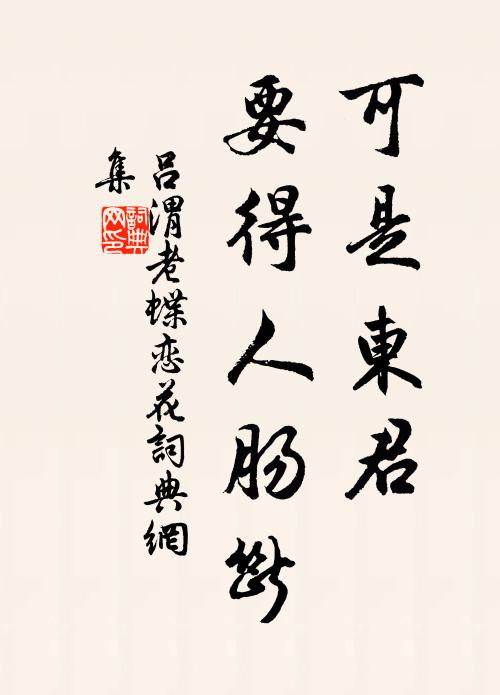 可是東君
要得人肠斷
吕渭老蝶恋花詞典網
集
詞典网印